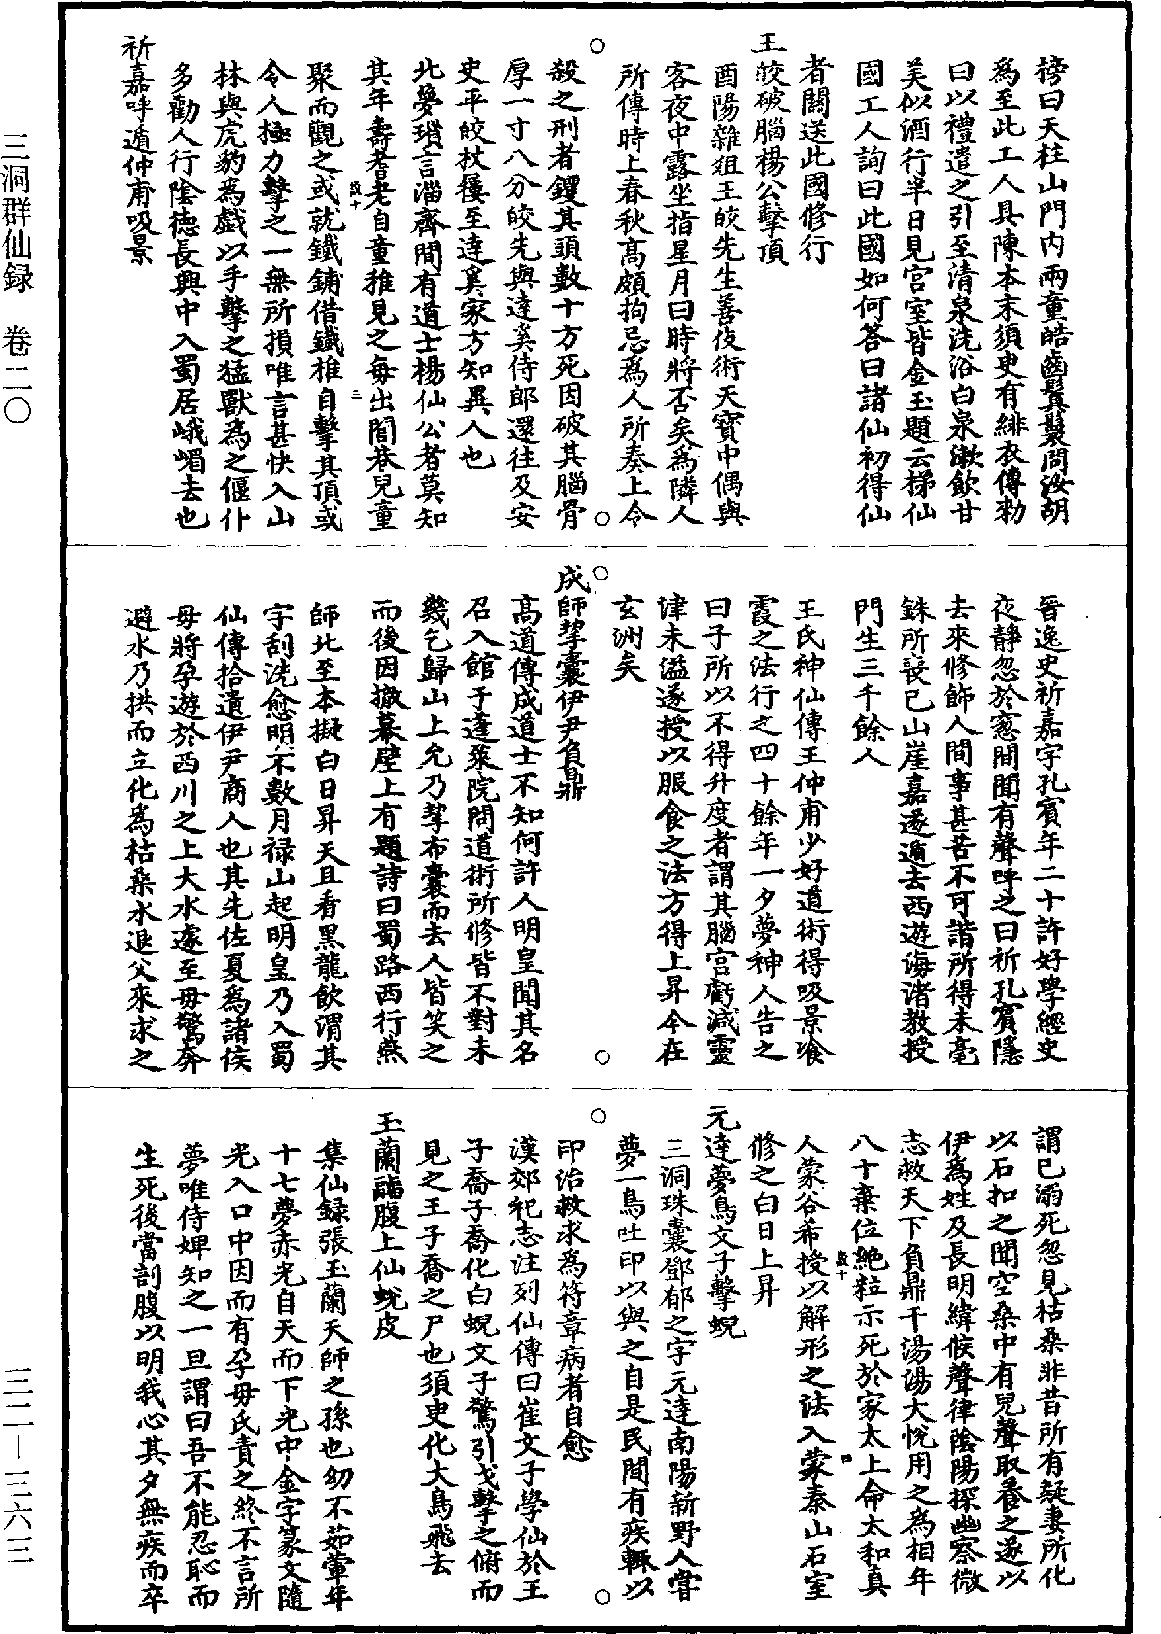 三洞群仙録　卷二〇
三二—三六三
榜曰天柱山門内兩童皓齒鬒髮問汝胡
爲至此工人具陳本末須臾有緋衣傳勑
曰以禮遣之引至清泉洗浴白泉漱飲甘
美似酒行半日見宫室皆金玉題云梯仙
國工人詢曰此國如何答曰諸仙初得仙
者關送此國修行
王皎破腦楊公擊頂
酉陽雜俎王皎先生善佽術天寶中偶與
客夜中露坐指星月曰時將否矣爲隣人
所傳時上春秋髙頗拘忌爲人所奏上令
殺之刑者钁其頭數十方死因破其腦骨
厚一寸八分皎先與達奚侍郎還往及安
史平皎杖屨至達奚家方知異人也
北夢瑣言淄齊間有道士楊仙公者莫知
其年壽耆老自童稚見之每出閭巷兒童
聚而觀之或就鐵鋪借鐵椎自擊其頂或
令人極力擊之一無所損唯言甚快入山
林與虎豹爲戲以手擊之猛獸爲之偃仆
多勸人行隂德長興中入蜀居峨嵋去也
祈嘉呼遁仲甫吸景
晉逸史祈嘉字孔賓年二十許好學經史
夜靜忽於窻間聞有聲呼之曰祈孔賓隱
去來修飾人間事甚苦不可諧所得未毫
銖所喪已山崖嘉遂遁去西遊海渚教授
門生三千餘人
王氏神仙傳王仲甫少好道術得吸景飡
霞之法行之四十餘年一夕夢神人告之
曰子所以不得升度者謂其腦宫虧減靈
津未溢遂授以服食之法方得上昇今在
玄洲矣
成師挈囊伊尹負鼎
髙道傳成道士不知何許人明皇聞其名
召入館于蓬萊院問道術所修皆不對未
幾乞歸山上允乃挈布囊而去人皆笑之
而後因撤幕壁上有題詩曰蜀路西行燕
師北至本擬白日昇天且看黑龍飲渭其
字刮洗愈明不數月禄山起明皇乃入蜀
仙傳拾遺伊尹商人也其先佐夏爲諸侯
母將孕遊於西川之上大水遽至母驚奔
避水乃拱而立化爲枯桑水退父來求之
謂已溺死忽見枯桑非昔所有疑妻所化
以石扣之聞空桑中有兒聲取養之遂以
伊爲姓及長明緯候聲律隂陽探幽察微
志救天下負鼎干湯湯大悅用之爲相年
八十棄位絶粒示死於家太上命太和真
人蒙谷希授以解形之法入蒙泰山石室
修之白日上昇
元達夢鳥文子擊蜺
三洞珠囊鄧郁之字元達南陽新野人嘗
夢一鳥吐印以與之自是民間有疾輒以
印治救求爲符章病者自愈
漢郊祀志注列仙傳曰崔文子學仙於王
子喬子喬化白蜺文子驚引戈擊之俯而
見之王子喬之尸也須臾化大鳥飛去
玉蘭𦘕腹上仙蛻皮
集仙録張玉蘭天師之孫也幼不茹葷年
十七夢赤光自天而下光中金字篆文隨
光入口中因而有孕母氏責之終不言所
夢唯侍婢知之一旦謂曰吾不能忍恥而
生死後當剖腹以明我心其夕無疾而卒